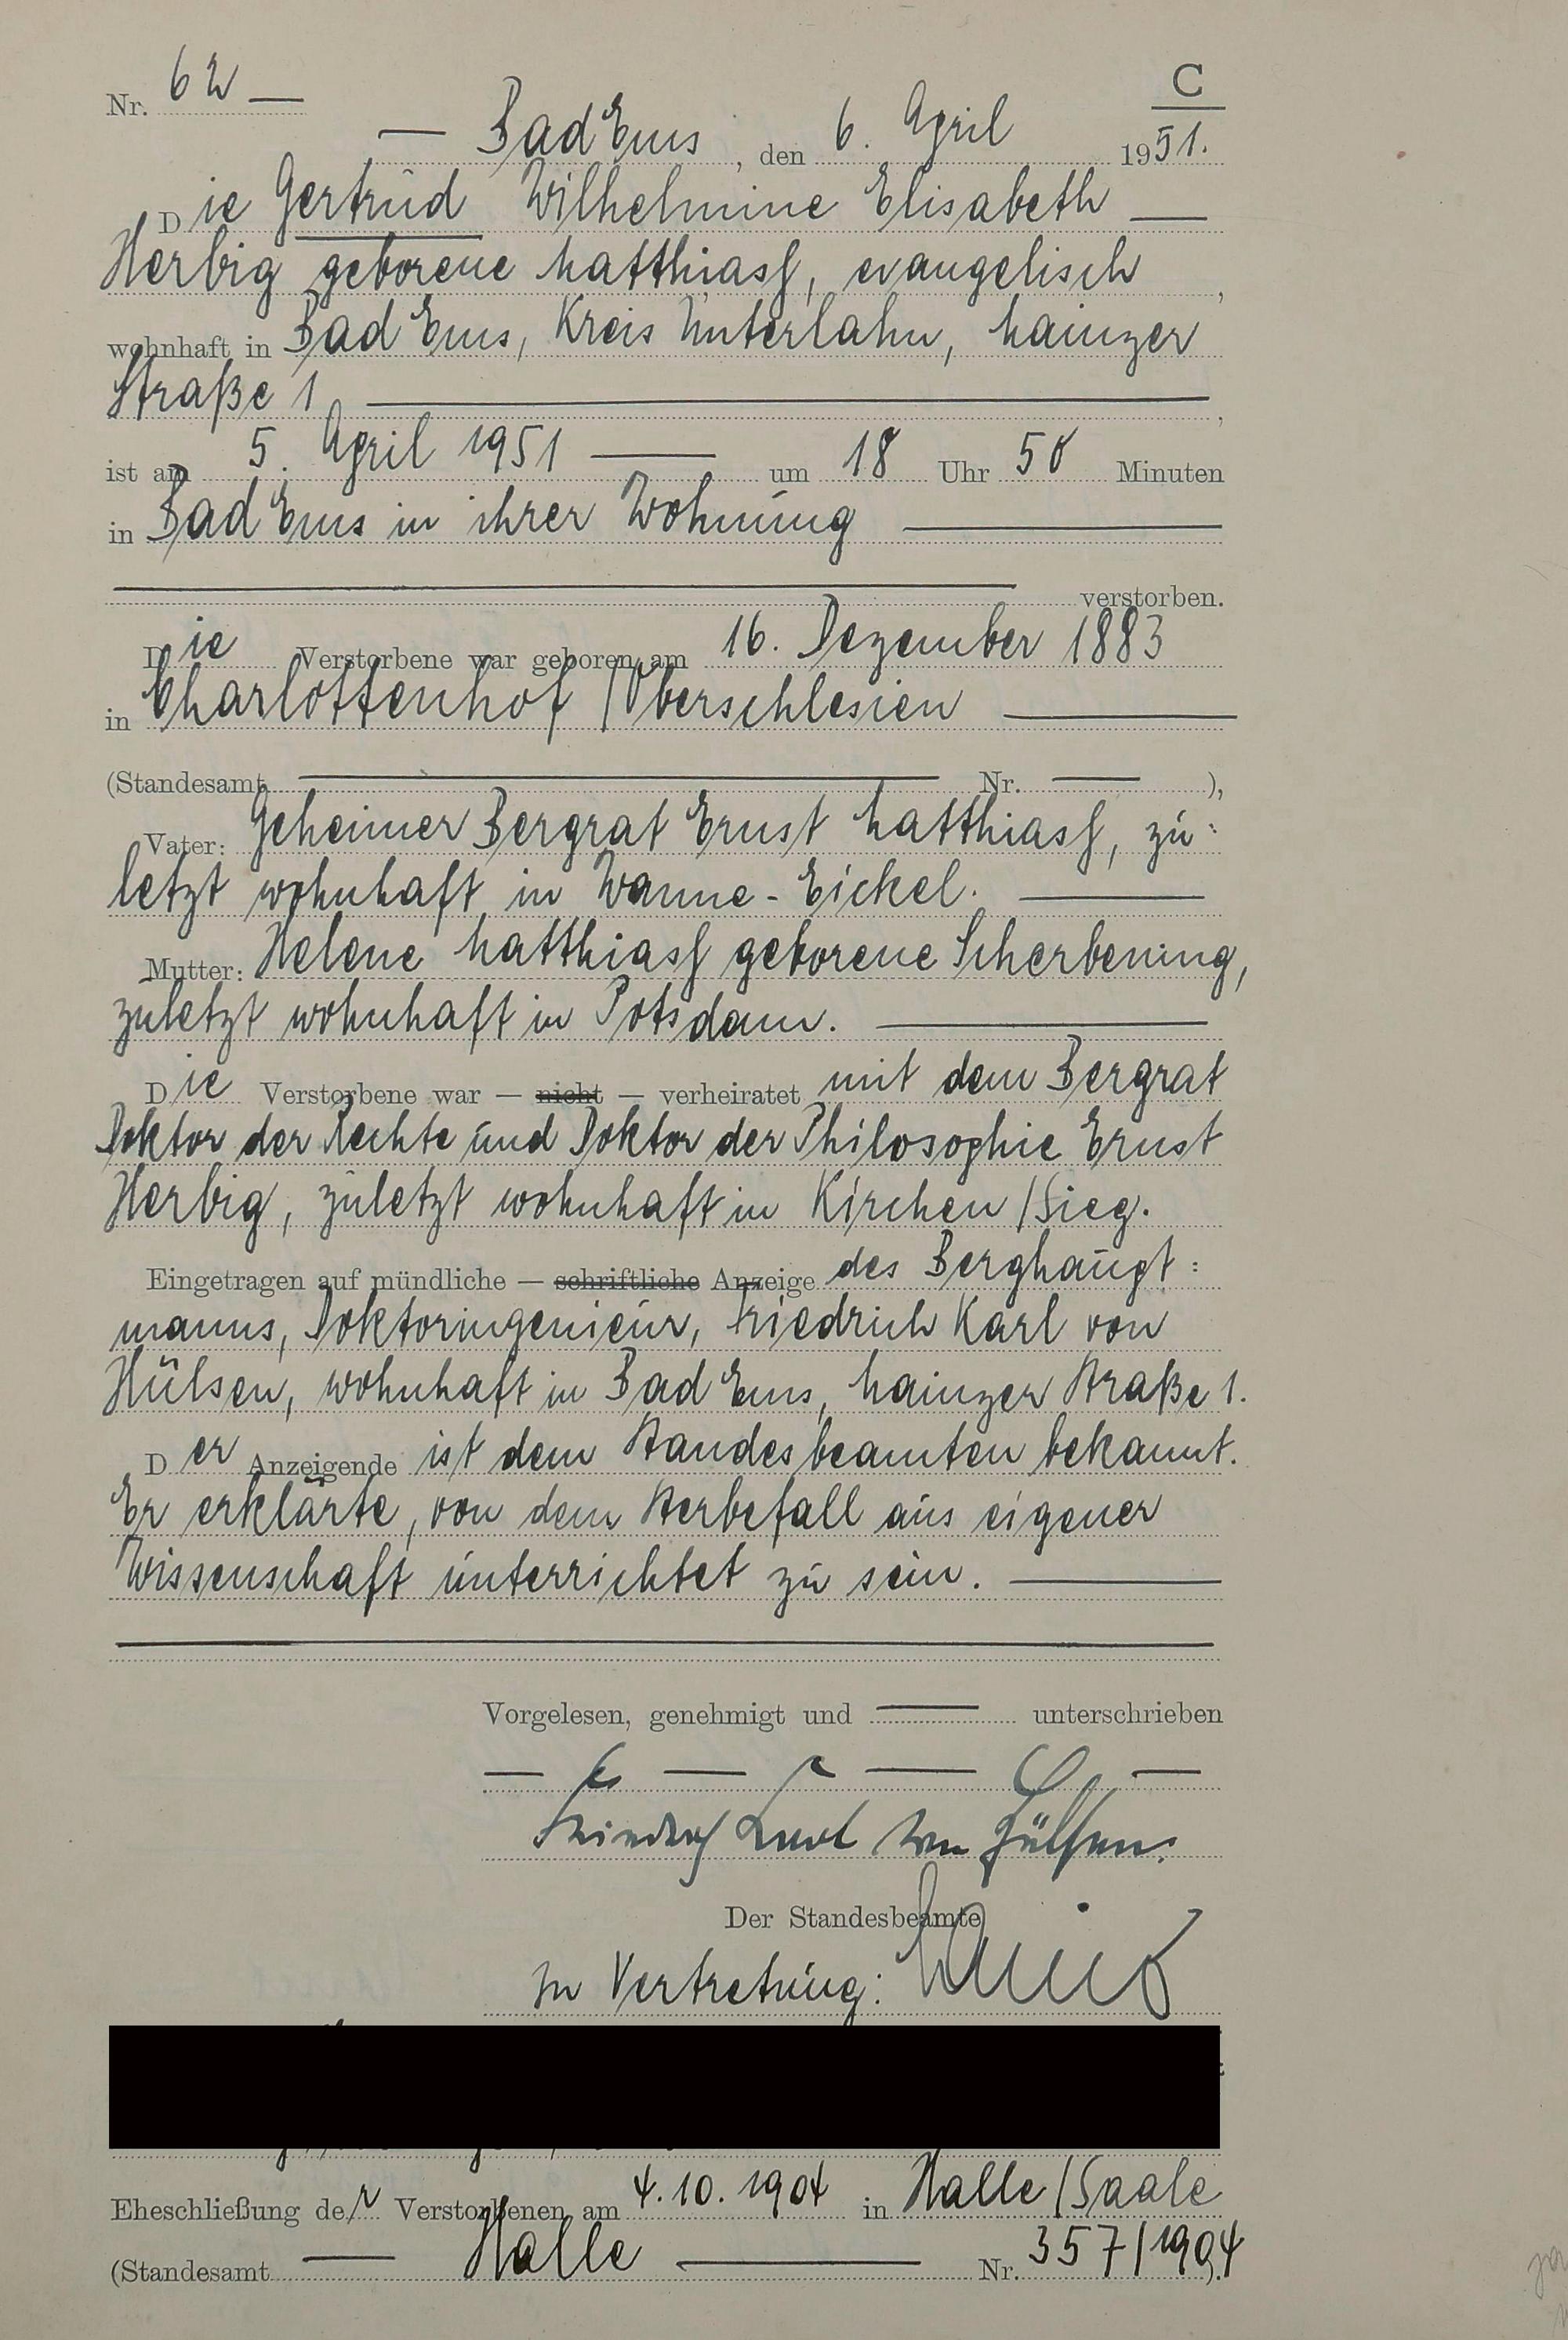 Nr. 62 —
C
— Bad Ems, den 6. April 1951.
Die Gertrud Wilhelmine Elisabeth —
Herbig geborene Matthiass, evangelisch,
wohnhaft in Bad Ems, Kreis Unterlahn, Mainzer
Straße 1 —,
ist am 5. April 1951 — um 18 Uhr 50 Minuten
in Bad Ems in ihrer Wohnung —
— verstorben.
Die Verstorbene war geboren am 16. Dezember 1883
in Charlottenhof / Oberschlesien —
(Standesamt — Nr. — ),
Vater: Geheimer Bergrat Ernst Matthiass, zu:
letzt wohnhaft in Wanne-Eickel. —
Mutter: Helene Matthiass geborene Scherbening,
zuletzt wohnhaft in Potsdam. —
Die Verstorbene war — nicht — verheiratet mit dem Bergrat
Doktor der Rechte und Doktor der Philosophie Ernst
Herbig, zuletzt wohnhaft in Kirchen / Sieg.
Eingetragen auf mündliche — schriftliche Anzeige des Berghaupt:
manns, Doktoringenieur, Friedrich Karl von
Hülsen, wohnhaft in Bad Ems, Mainzer Straße 1.
Der Anzeigende ist dem Standesbeamten bekannt.
Er erklärte, von dem Sterbefall aus eigener
Wissenschaft unterrichtet zu sein. —
Vorgelesen, genehmigt und — unterschrieben
Friedrich Karl von Hülsen.
Der Standesbeamte
In Vertretung:
Eheschließung der Verstorbenen am 4.10.1904 in Halle / Saale
(Standesamt — Halle — Nr. 357/1904).